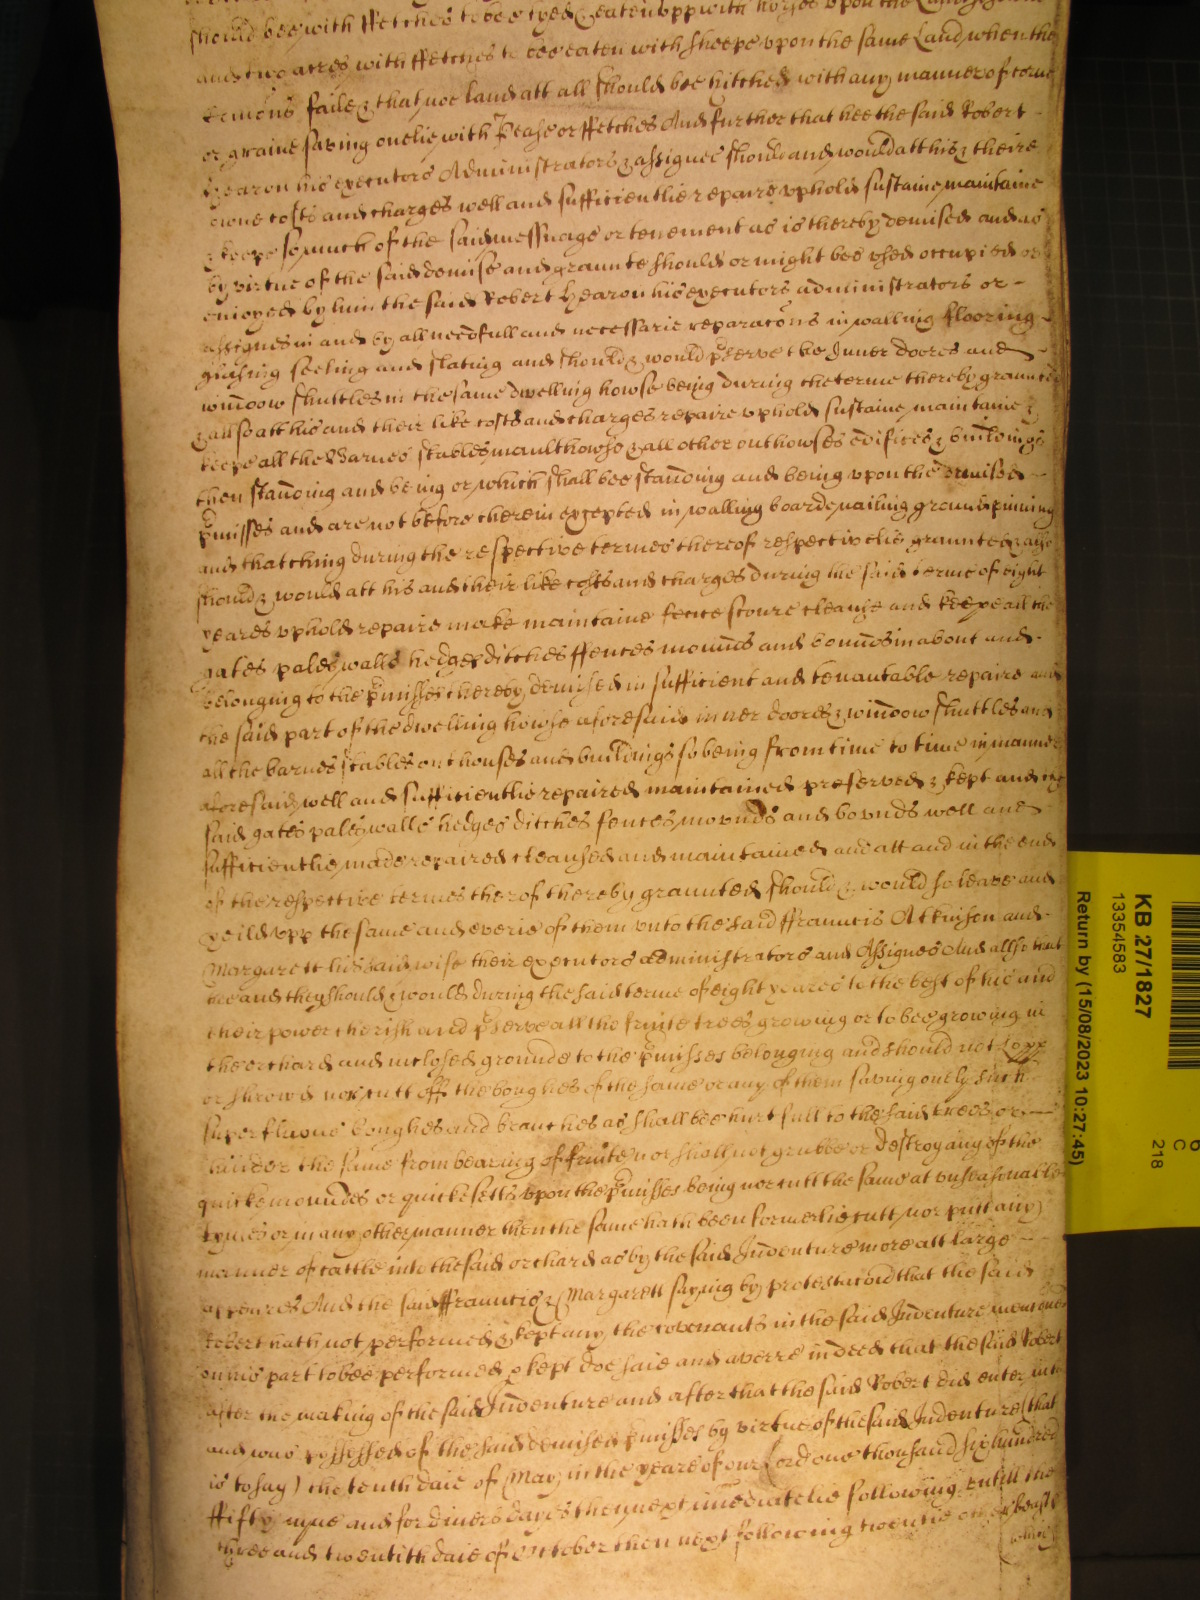 should bee with ffetches to bee tyed & eaten vpp with horses vpon the
and two acres with ffetches to bee eaten with sheepe vpon the same Land when the
Comons faile & that noe land att all should bee hitched with any manner of corne
or graine saving onelie with Pease or ffetches And further that hee the said Robert
Hearon his executors Administrators & assignes should and would att his & theire
owne costs and charges well and sufficientlie repaire vphold sustaine maintaine
& keepe so much of the said messuage or tenement as is thereby demised and as
by virtue of the said demise and graunte should or might bee vsed occupied or
enioyed by him the said Robert Hearon his executors administrators or
assignes in and by all needfull and necessarie reparacons in walling flooring
seeling and slating and should & would pserve the Inner doores and
windoow shuttles in the same dwelling howse being during the terme thereby graunted
& allso att his and their like costs and charges repaire vphold sustaine maintaine &
keepe all the Barnes stables maulthowse & all other outhowses edifices & buildings
then standing and being or which shall bee standing and being vpon the demised
pmisses and are not before therein excepted in walling boarde nailing ground pinning
and thatching during the respective termes thereof respectivelie graunted & allso
should & would att his and their like costs and charges during the said terme of eight
yeares vphold repaire make maintaine fence scoure cleanse and keepe all the
gates pales walls hedges ditches ffences mounds and bounds in about and
belonging to the pmisses thereby demised in sufficient and tenantable repaire and
the said part of the dweling howse aforesaid inner doores & windoow shuttles and
all the barnes stables outhouses and buildings so being from time to time in manner
aforesaid well and sufficientlie repaired maintained preserved & kept and the
said gates pales walls hedges ditches fences mounds and bounds well and
sufficientlie made repaired cleansed and maintained and att and in the end
of the respective termes therof thereby graunted should & would so leave and
yeild vpp the same and everie of them vnto the said ffrauncis Atkinson and
Margarett his said wife their executors administrators and Assignes And allso that
hee and they should & would during the said terme of eight yeares to the best of his and
their power cherish and pserve all the fruite trees growing or to bee growing in
the orchard and inclosed grounde to the pmisses belonging and should not Lopp
or shrowd nor cutt off the boughes of the same or any of them saving onely such
superfluous boughes and branches as shall bee hurtfull to the said trees or
hinder the same from bearing of fruite nor shall not grubbe or destroy any of the
quicke moundes or quicksetts vpon the pmisses being nor cutt the same at vnseasonable
tymes or in any other manner then the same hath been formerlie cutt nor putt any
manner of cattle into the said orchard as by the said Indenture more att large
appeares And the said ffrauncis & Margarett saying by protestacon that the said
Robert hath not performed & kept any the covenants in the said Indenture menconed
on his part to bee performed & kept doe saie and averre indeed that the said Robert
after the making of the said Indenture and after that the said Robert did enter into
and was possessed of the said demised pmisses by virtue of the said Indenture (that
is to say) the tenth daie of May in the yeare of our Lord one thousand six hundred
ffifty nyne and for divers dayes then next imediatelie following vntill the
three and twentith daie of October then next following twentie one beasts
KB 27/1827
13354583
Return by (15/08/2023 10:27:45)
C
218